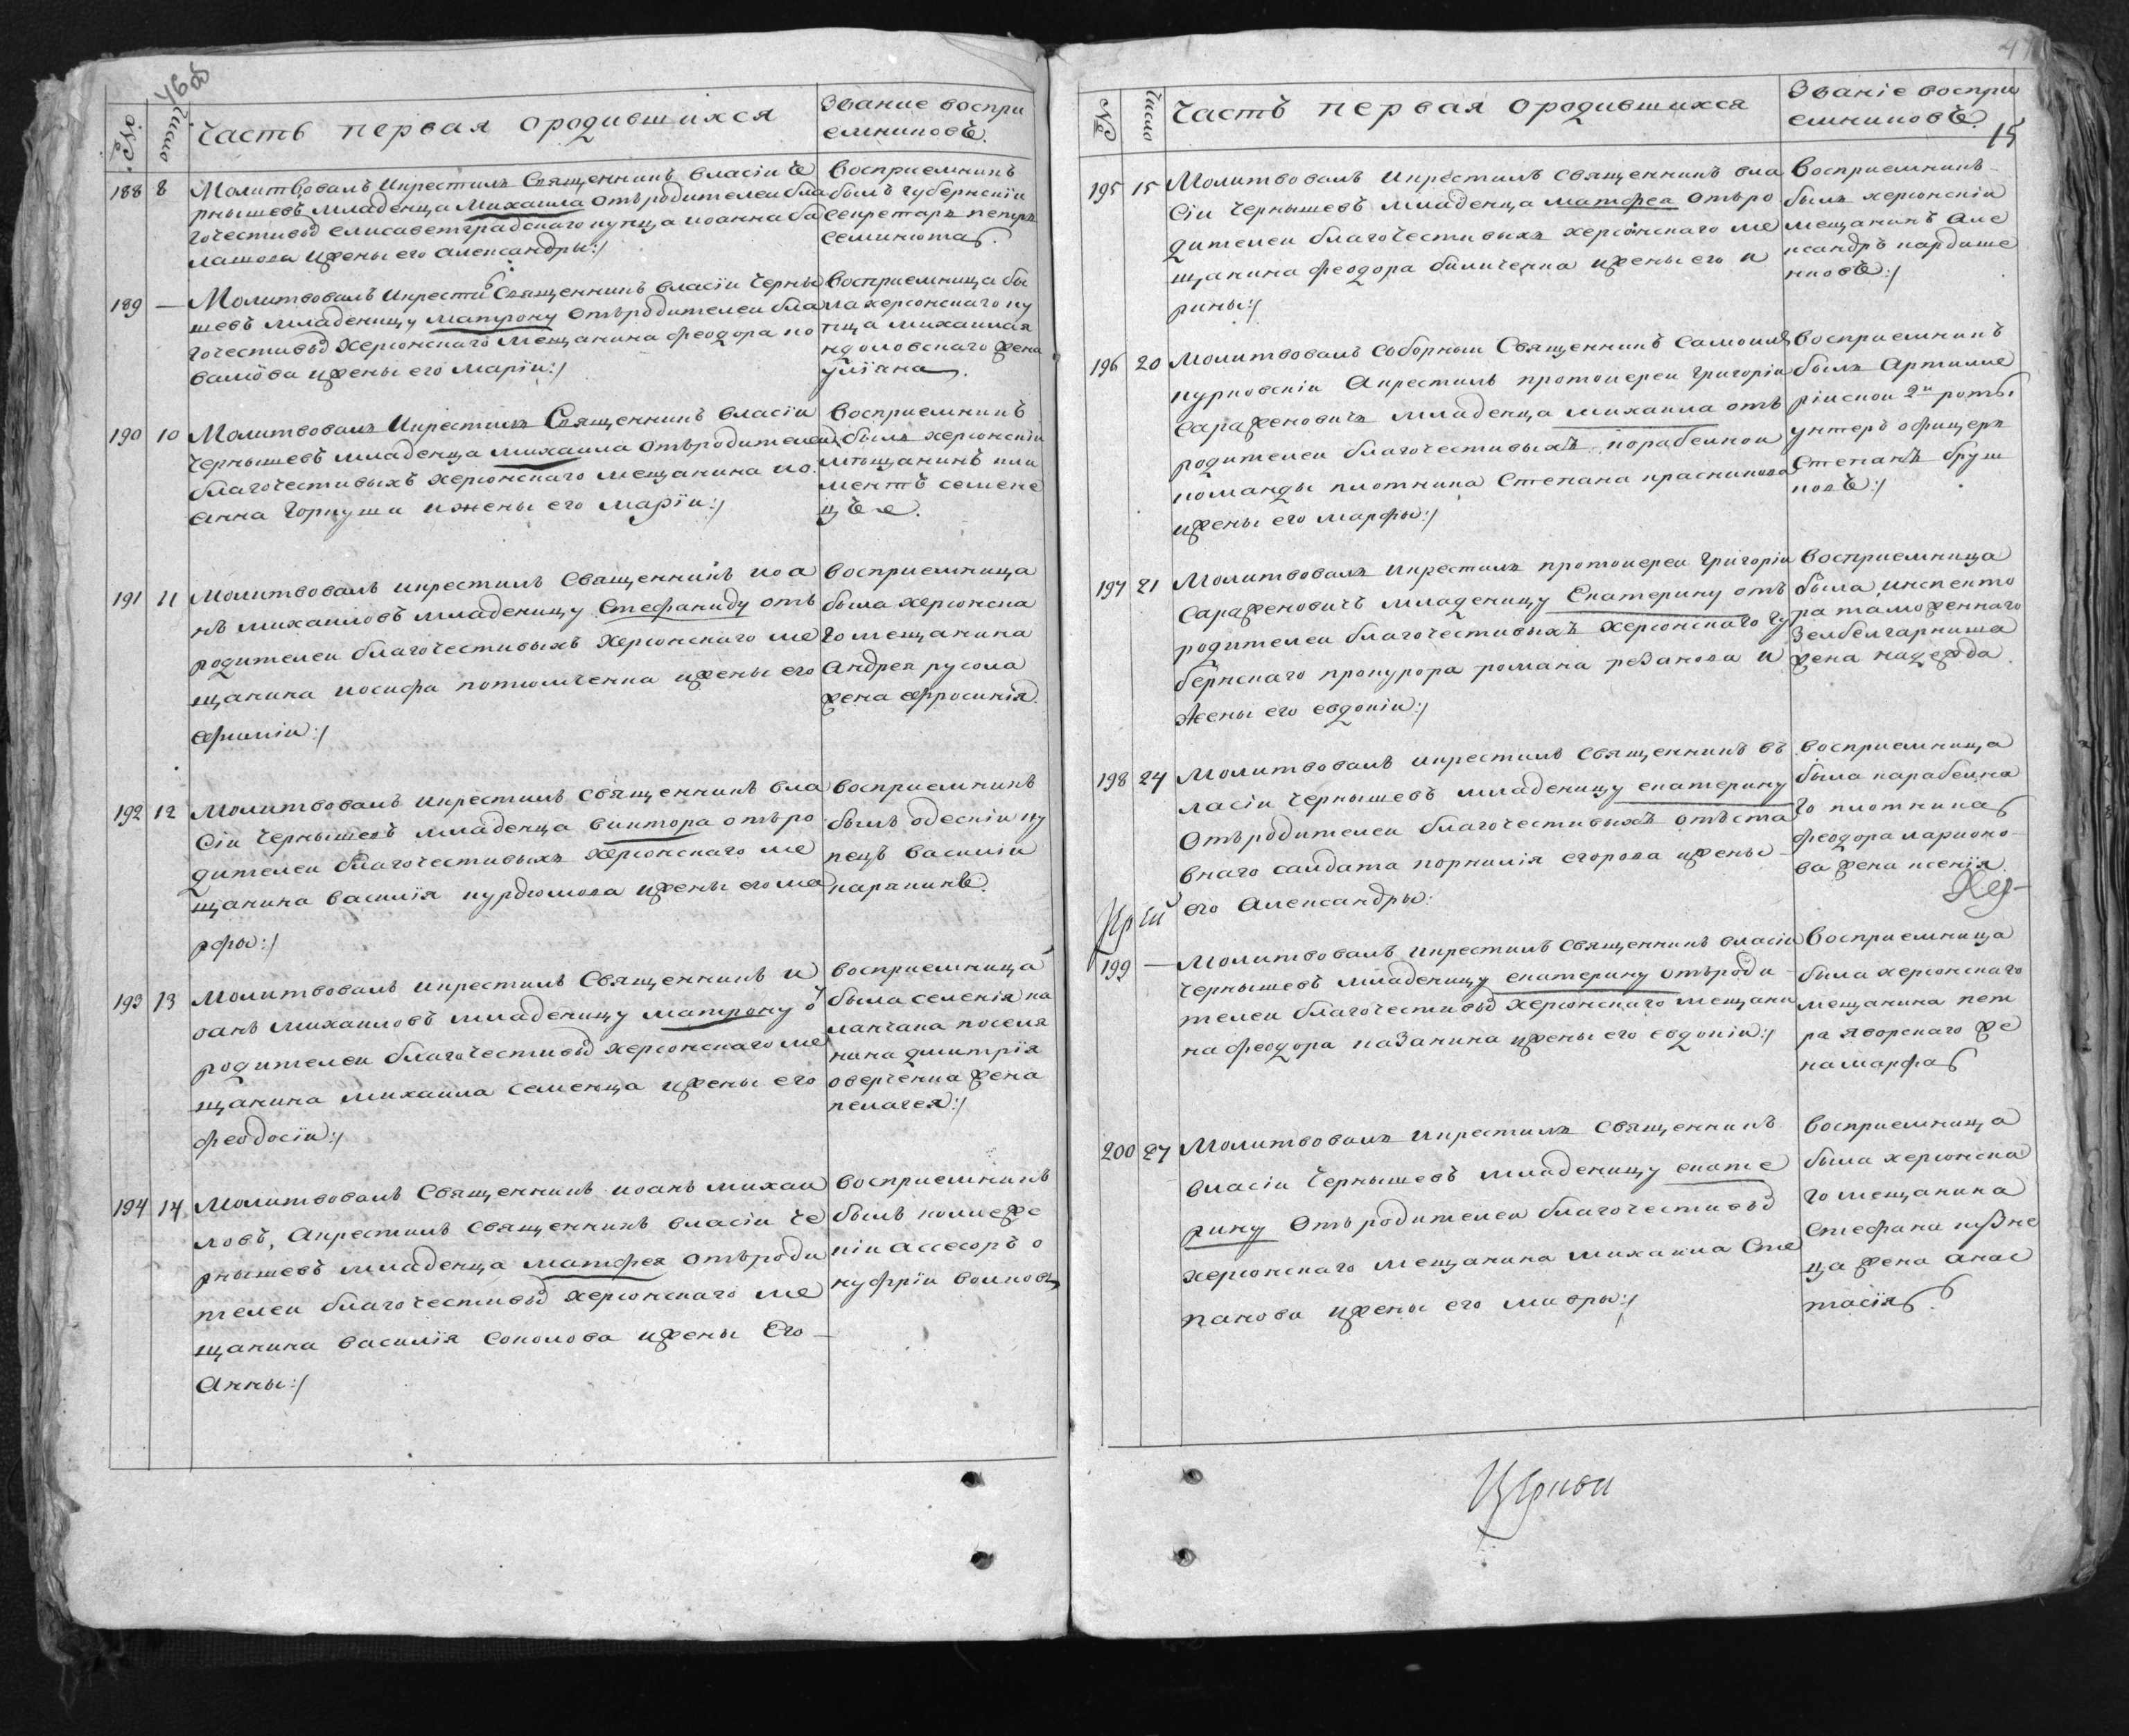 46 об
№. Число Часть первая ородившихся Званiе воспри
емниковъ.
188 8 Молитвовалъ икрестилъ Священникъ власiи Че
рнышевъ младенца Михаила отъродителеи бла
гочестивыхъ елисаветградскаго купца иоанна ба
лашова ижены его александры:/
Восприемникъ
былъ губернскiи
секретарь петръ
семикота.
189 — Молитвовалъ икрестилъ Священникъ власiи Черны
шевъ младеницу матрону отъродителеи бла
гочестивыхъ Херсонскаго мещанина феодора ко
валiова ижены его Марiи:/
Восприемница бы
ла херсонскаго ку
пца михаила я
ндоловскаго жена
улiяна.
190 10 Молитвовалъ икрестилъ Священникъ власiи
Чернышевъ младенца михаила отъродителеи
благочестивыхъ херсонскаго мещанина ио
анна горкуши ижены его марiи:/
Восприемникъ
былъ херсонскiи
мѣщанинъ кли
ментъ семене
цъ.
191 11 Молитвовалъ икрестилъ Священникъ иоа
нъ михаиловъ младеницу Стефаниду отъ
родителеи благочестивыхъ Херсонскаго ме
щанина иосифа потомченка ижены его
ефимiи:/
восприемница
была херсонска
го мещанина
андрея русола
жена ефросинiя.
192 12 Молитвовалъ икрестилъ священникъ вла
сiи Чернышевъ младенца виктора отъро
дителеи благочестивыхъ херсонскаго ме
щанина василiя курдюмова ижены его ма
рфы:/
восприемникъ
былъ одескiи ку
пецъ василiи
карякинъ.
193 13 Молитвовалъ икрестилъ Священникъ и
оанъ михаиловъ младеницу матрону о
родителеи благочестивыхъ херсонскаго ме
щанина михаила семенца ижены его
феодосiи:/
восприемница
была селенiя ка
ланчака поселя
нина димитрiя
оверченка жена
пелагея:/
194 14 Молитвовалъ священникъ иоанъ михаи
ловъ, акрестилъ священникъ власiи Че
рнышевъ младенца матфея отъроди
телеи благочестивыхъ херсонскаго ме
щанина василiя соколова ижены его
анны:/
восприемникъ
былъ коллеже
кiи ассесоръ о
нуфрiи волковъ
47
№ Число Часть первая ородившихся Званiе воспри
емниковъ.
15
195 15 Молитвовалъ икрестилъ священникъ вла
сiи Чернышевъ младенца матфеа отъро
дителеи благочестивыхъ херсонскаго ме
щанина феодора биличенка ижены его и
рины:/
Восприемникъ
былъ херсонскiи
мещанинъ але
ксандръ кардаше
нковъ:/
196 20 Молитвовалъ соборныи Священникъ самоилъ
курковскiи Акрестилъ протоиереи григорiи
Сараженовичъ младенца михаила отъ
родителеи благочестивыхъ корабелнои
команды плотника Степана красникова
ижены его марфы:/
восприемникъ
былъ Артилле
рiискои 2й роты
унтеръ офицеръ
Степанъ бруш
ковъ:/
197 21 Молитвовалъ икрестилъ протоиереи григорiи
Сараженовичъ младеницу Екатерину отъ
родителеи благочестивыхъ херсонскаго гу
бернскаго прокурора романа резанова и
жены его евдокiи:/
восприемница
была инспекто
ра таможеннаго
жена надежда.
198 24 Молитвовалъ икрестилъ священникъ въ
ласiи Чернышевъ младеницу екатерину
отъродителеи благочестивыхъ отъста
внаго салдата корнилiя егорова ижены
его александры:
восприемница
была карабелна
го плотника
феодора ларионо
ва жена ксенiя.
199 — Молитвовалъ икрестилъ священникъ власiи
Чернышевъ младеницу екатерину отъроди
телеи благочестивыхъ Херсонскаго мещани
на феодора казанина ижены его евдокiи:/
Восприемница
была херсонскаго
мещанина пет
ра яворскаго же
на марфа
200 27 Молитвовалъ икрестилъ священникъ
власiи Чернышевъ младеницу екате
рину отъродителеи благочестивыхъ
херсонскаго мещанина михаила Сте
панова ижены его мавры:/
восприемница
была херсонска
го мещанина
Стефана кузне
ца жена анас
тасiя.